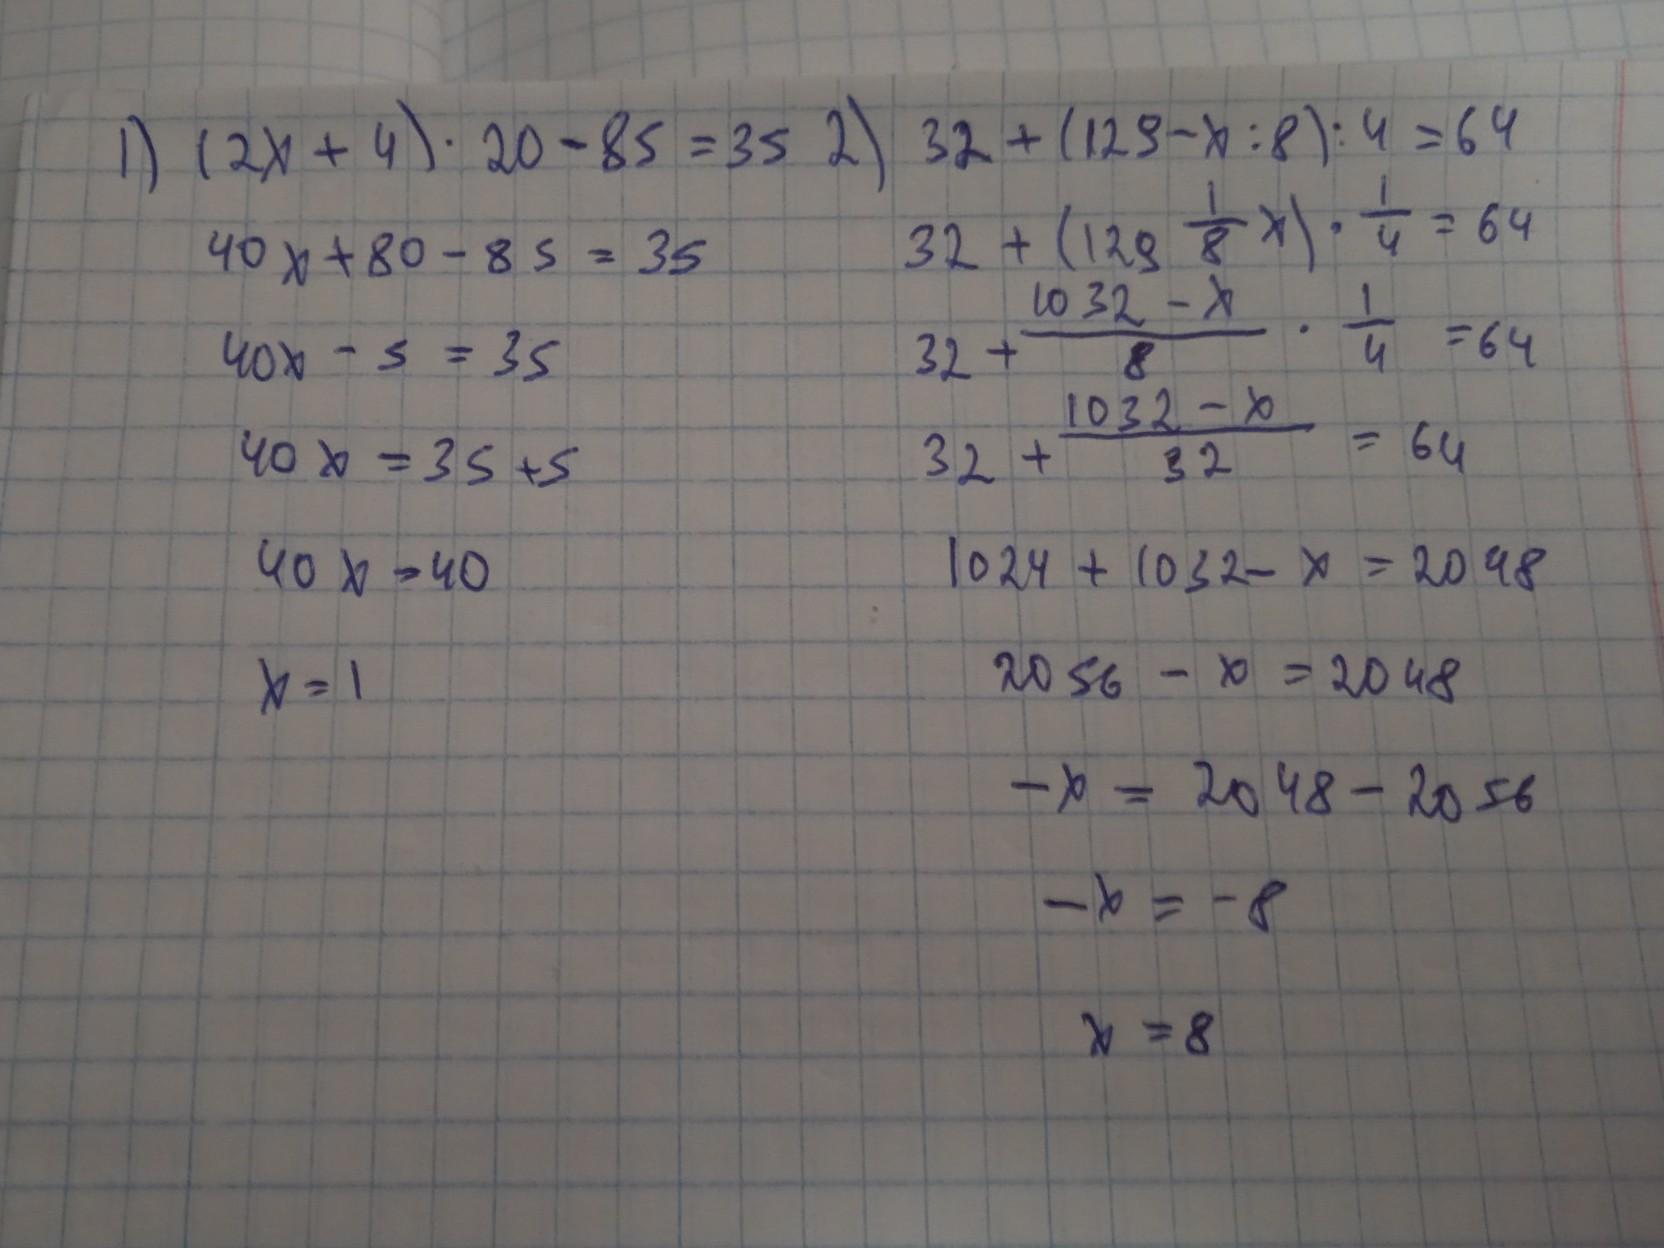 1) (2x + 4) · 20 - 85 = 35
40x + 80 - 85 = 35
40x - 5 = 35
40x = 35 + 5
40x = 40
x = 1
2) 32 + (129 - x : 8) : 4 = 64
32 + (129 1/8 x) · 1/4 = 64
32 + (1032 - x)/8 · 1/4 = 64
32 + (1032 - x)/32 = 64
1024 + 1032 - x = 2048
2056 - x = 2048
-x = 2048 - 2056
-x = -8
x = 8